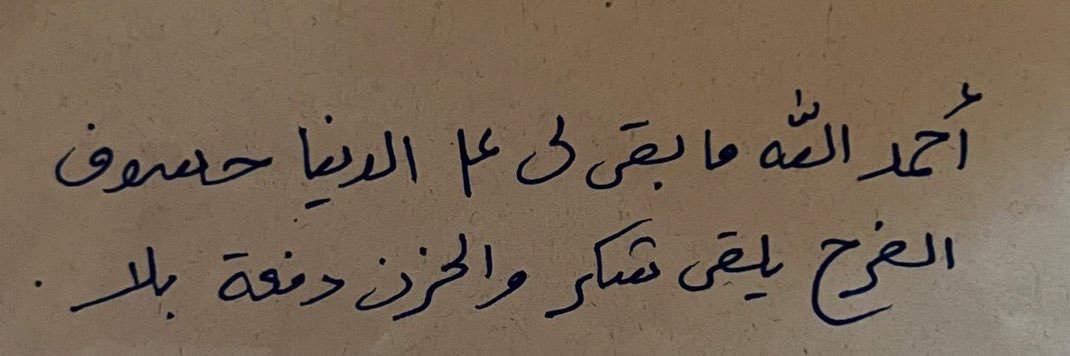 أحمد الله ما بقى لى عا الدنيا حسوف
الفرح يلقى شكر والحزن دفعة بلا .